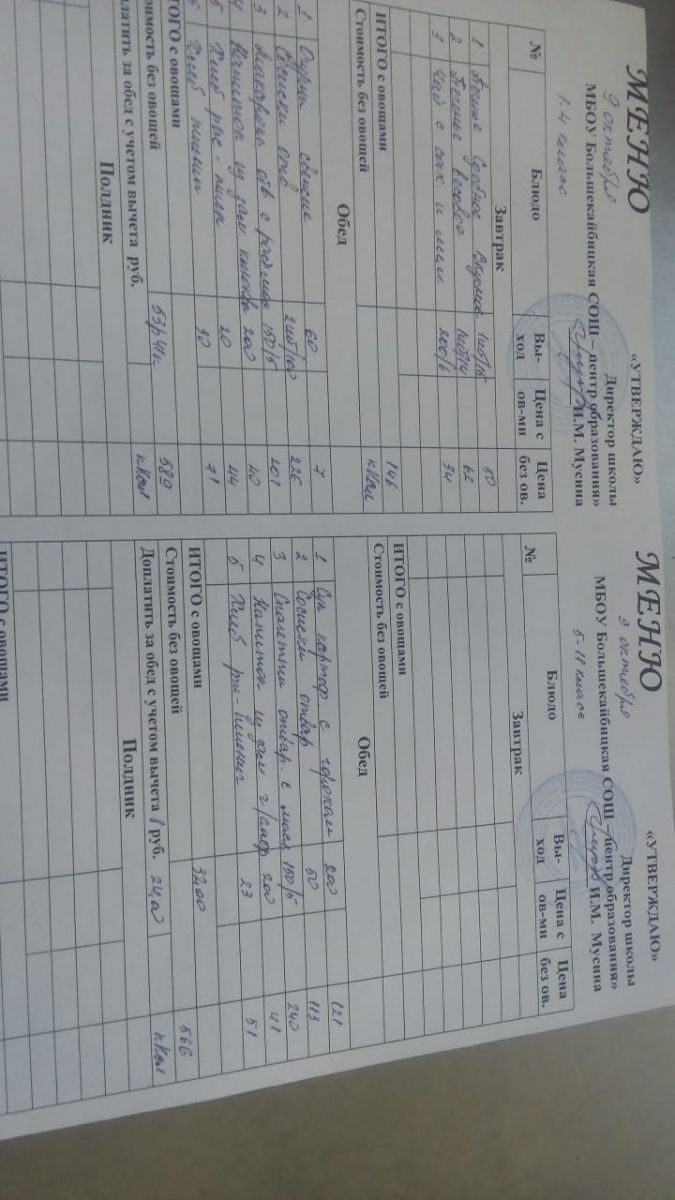 МЕНЮ
«УТВЕРЖДАЮ»
Директор школы
9 октября
МБОУ Большекайбицкая СОШ – центр образования»
И.М. Мусина
1-4 классы
№ Блюдо Вы-ход Цена с ов-ми Цена без ов.
Завтрак
1 50
2 Печенье 62
3 Чай с сах и 200/6 34
ИТОГО с овощами 146
Стоимость без овощей кКал
Обед
1 Огурцы свежие 60 7
2 Сосиски отв 226
3 Макароны отв с 150/5 201
4 Напиток из 200 40
5 Хлеб рж - пшен 20 44
6 Хлеб пшенич 30 71
ИТОГО с овощами 589
Стоимость без овощей кКал
Доплатить за обед с учетом вычета руб.
Полдник
МЕНЮ
«УТВЕРЖДАЮ»
Директор школы
9 октября
МБОУ Большекайбицкая СОШ – центр образования»
И.М. Мусина
5-11 классы
№ Блюдо Вы-ход Цена с ов-ми Цена без ов.
Завтрак
ИТОГО с овощами
Стоимость без овощей
Обед
1 Суп картоф с горохом 200 121
2 Сосиски отвар 50 113
3 Спагетти отвар. с масл 150/5 240
4 Напиток из 200 41
5 Хлеб рж-пшенич 23 51
ИТОГО с овощами 32.00
Стоимость без овощей 566
Доплатить за обед с учетом вычета 8 руб. 24,00 кКал
Полдник
ИТОГО с овощами